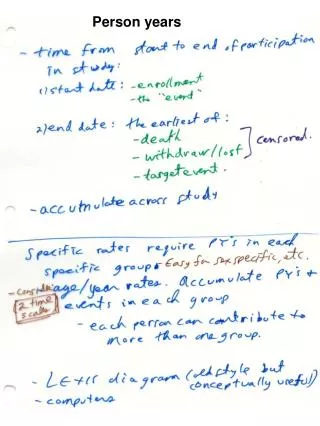 Person years
- time from start to end of participation
in study:
1) start date: - enrollment
- the "event"
2) end date: the earliest of:
- death
- withdraw/lost
] censored.
- target event.
- accumulate across study
Specific rates require PY's in each
specific group. Easy for sex specific, etc.
- Consider age/year rates. Accumulate PY's +
2 time scales events in each group
- each person can contribute to
more than one group.
- LEXIS diagram (old style but
conceptually useful)
- computers